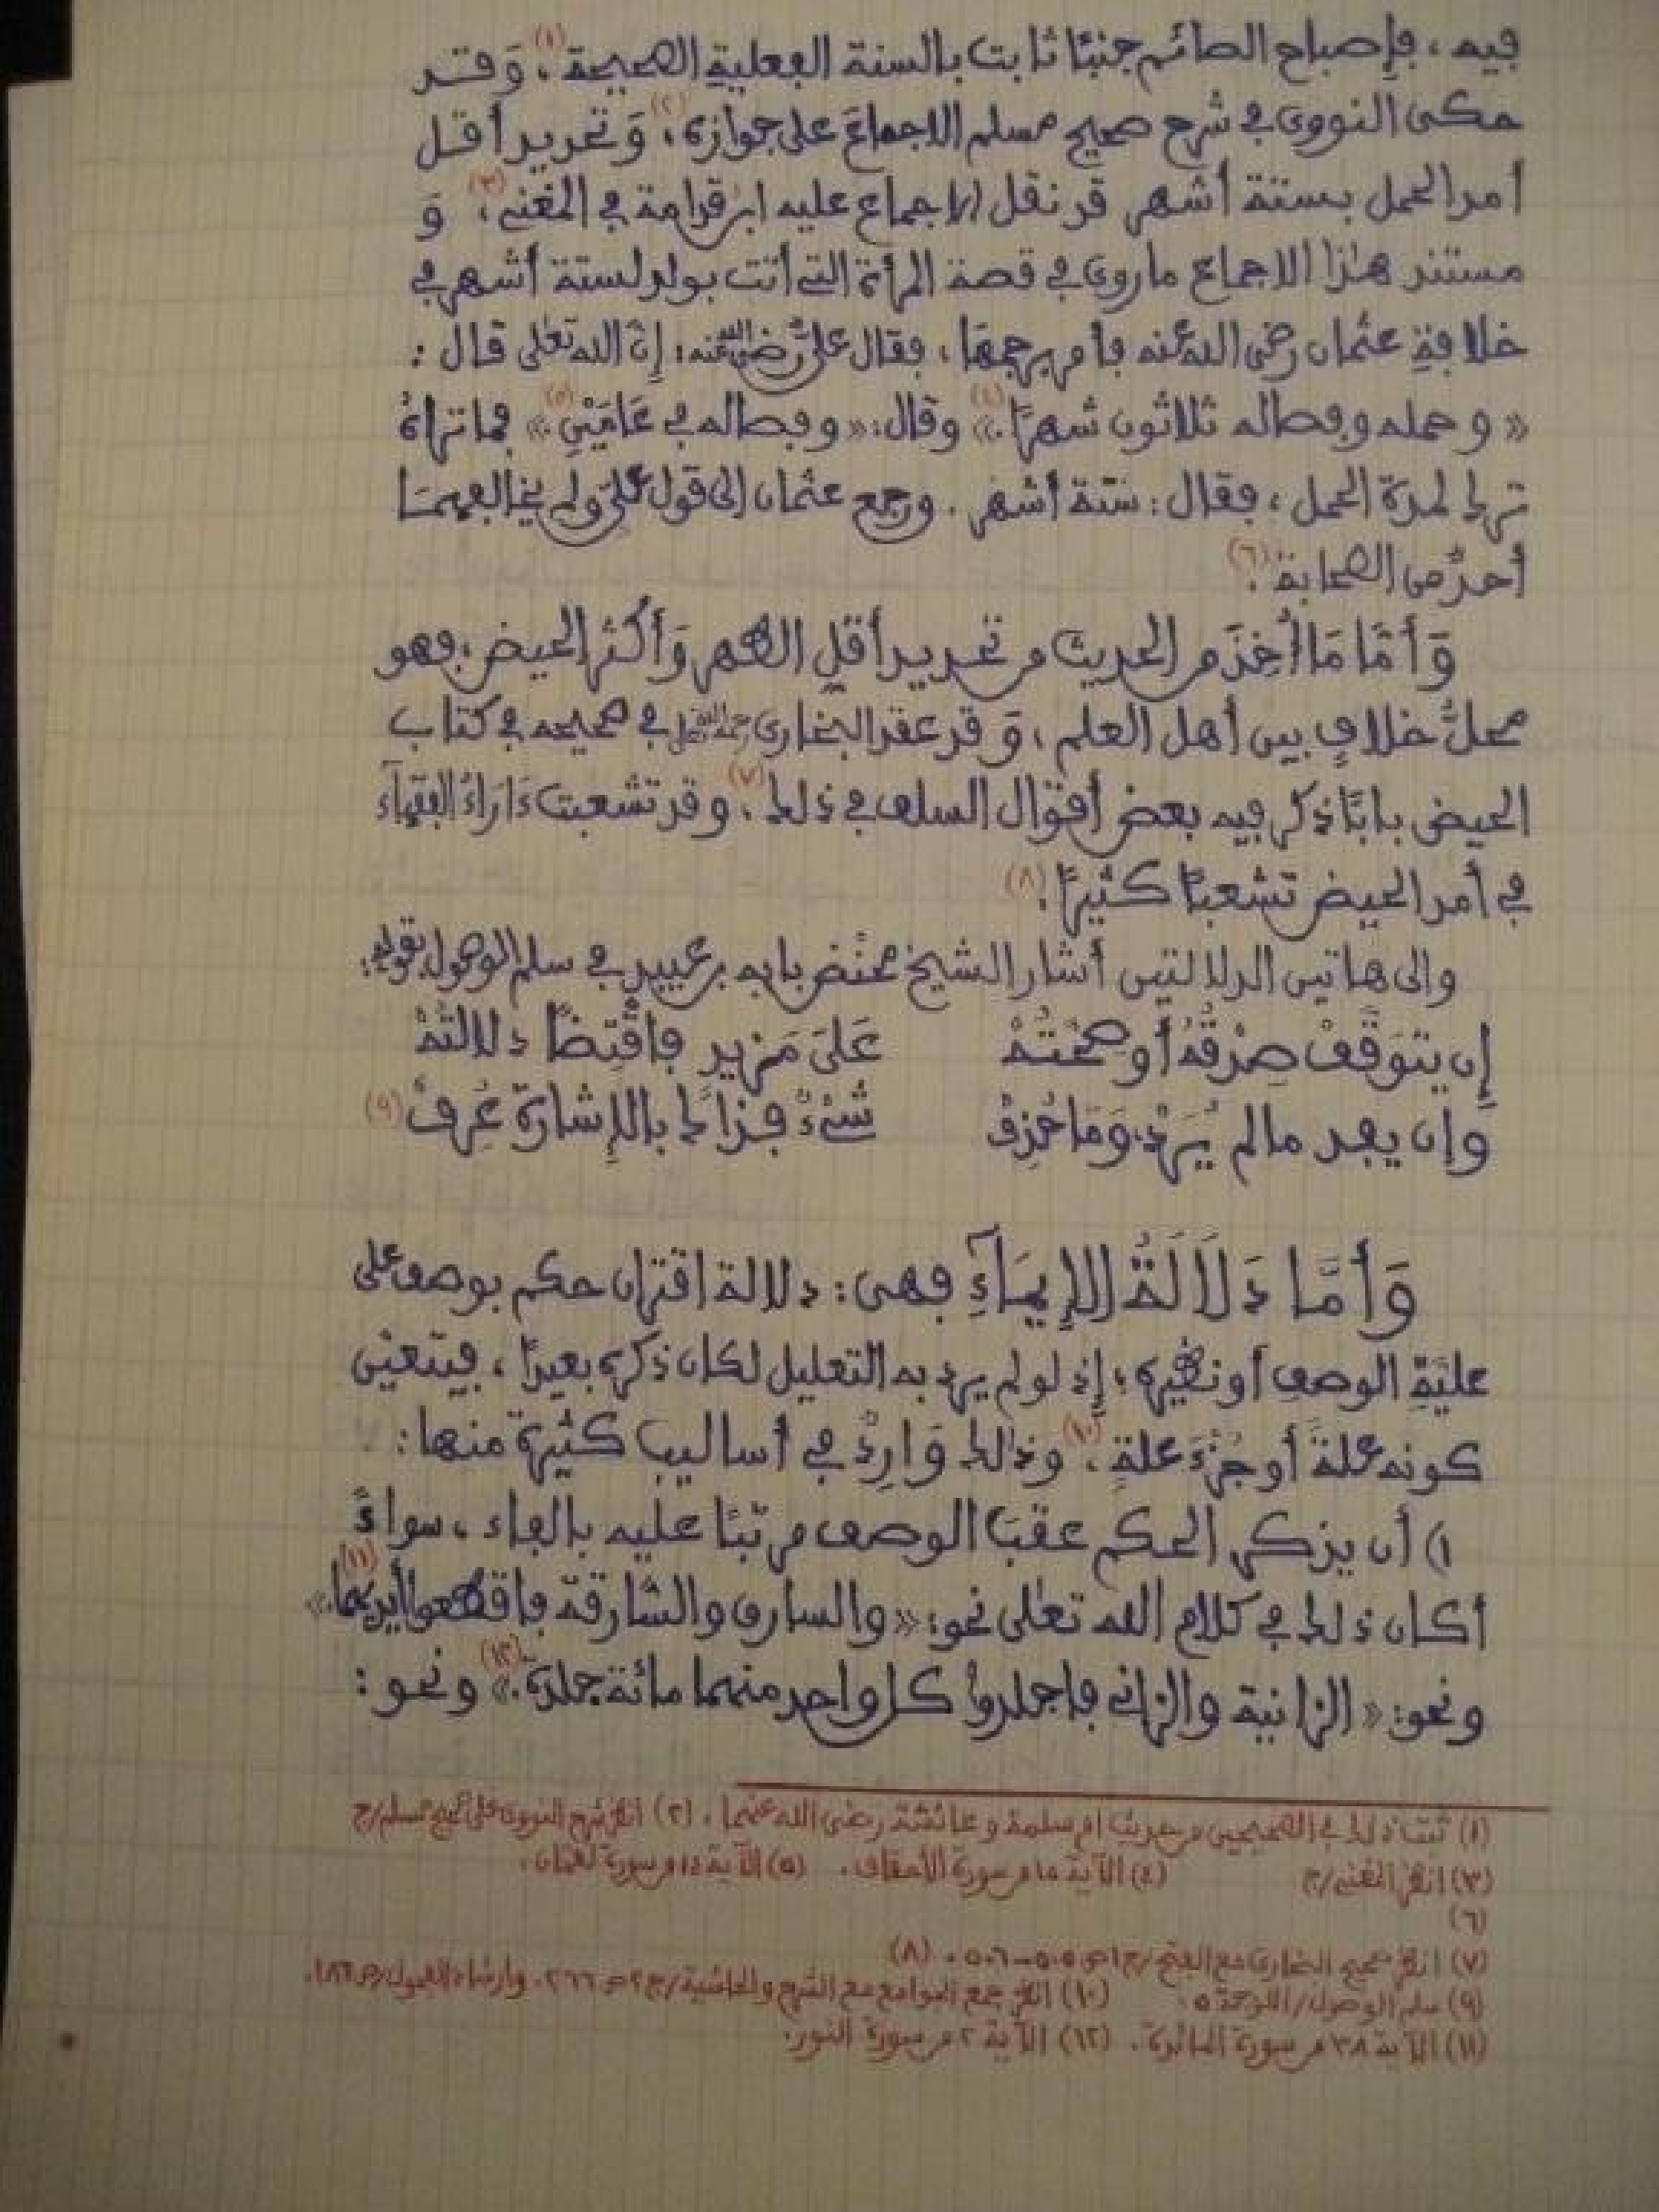 فيه، فإصباح الصائم جنبًا ثابت بالسنة الفعلية الصحيحة (١)، وَقد
حكى النووي في شرح صحيح مسلم الاجماعَ على جوازه (٢)، وَتحديد أقل
أمد الحمل بستة أشهر قد نقل الاجماع عليه ابن قدامة في المغني (٣)، وَ
مستند هـٰذا الاجماع ما روي في قصة المرأة التي أتت بولد لستة أشهر في
خلافةِ عثمان رضي الله عنه فأمر برجمها، فقال عليٌّ رضي الله عنه: إنّ الله تعٰلى قال:
«وحمله وفصاله ثلاثون شهرًا.» (٤) وقال: «وفصاله في عَامَيْنِ.» (٥) فما تراهُ
ترك لمدة الحمل، فقال: ستة أشهر. ورجع عثمان الى قول عليّ ولم يخالفهمَا
أحدٌ من الصحابة (٦).
وَأمَّا مَا أُخِذَ من الحديث من تحديد أقلِ الطهر وَأكثر الحيض، فهو
محلُّ خلافٍ بين أهل العلم، وَقد عقد البخاري رحمه الله في صحيحه في كتاب
الحيض بابًا ذكر فيه بعض أقوال السلف في ذلك (٧)، وقد تشعبت ءَارَاءُ الفقهآء
في أمد الحيض تشعبًا كثيرًا (٨).
والى هاتين الدلالتين أشار الشيخ محنض بابه بن عبيد في سلم الوصول بقوله:
إن يتوَقَّفْ صِدْقُهُ أو صحَّتُهْ عَلَى مَزيدٍ فاقْتِضًا دلالتُهْ
وإن يفد ما لم يُرَدْ، وَمَا حُذِفْ شيْءٌ فذاكَ بالإشارة عُرِفْ (٩)
وَأمَّا دَلَالَةُ الإيمَآءِ فهي: دلالة اقتران حكم بوصف على
عليّةِ الوصف أو نظيره؛ إذ لو لم يرد به التعليل لكان ذكره بعيدًا، فيتعين
كونه علةً أو جُزْءَ علةٍ (١٠)، وذٰلك وَارِدٌ في أساليب كثيرة منها:
١) أن يذكر الحكم عقبَ الوصف مرتبًا عليه بالفاء، سواءٌ
أكان ذلك في كلام الله تعٰلى نحو: «والسارق والسّارقة فاقطعوا أيديهما.» (١١)
ونحو: «الزانية والزاني فاجلدوا كل واحد منهما مائة جلدة.» (١٢) ونحو:
(١) ثبت ذلك في الصحيحين من حديث أم سلمة وعائشة رضي الله عنهما. (٢) انظر شرح النووي على صحيح مسلم/ج
(٣) انظر المغني/ج (٤) الآية ١٥ من سورة الأحقاف. (٥) الآية ١٤ من سورة لقمان.
(٦)
(٧) انظر صحيح البخاري مع الفتح/ج١ ص٥٠٥-٥٠٦. (٨)
(٩) سلم الوصول/اللوحة ٥. (١٠) انظر جمع الجوامع مع الشرح والحاشية/ج٢ ص٢٦٦. وإرشاد الفحول/
(١١) الآية ٣٨ من سورة المائدة. (١٢) الآية ٢ من سورة النور.